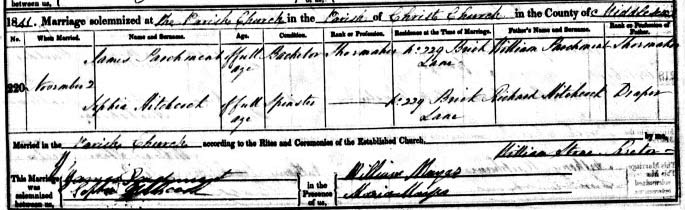 1841. Marriage solemnized at The Parish Church in the Parish of Christ Church in the County of Middlesex
No. When Married. Name and Surname. Age. Condition. Rank or Profession. Residence at the Time of Marriage. Father's Name and Surname. Rank or Profession of Father.
220 November 2 James Parchment Of full age Bachelor Shoemaker No 229 Brick Lane William Parchment Shoemaker
Sophia Hitchcock Of full age Spinster No 229 Brick Lane Richard Hitchcock Draper
Married in the Parish Church according to the Rites and Ceremonies of the Established Church, by me,
William Stone Rector
This Marriage was solemnized between us, James Parchment Sophia Hitchcock in the Presence of us, William Mayes Maria Mayes